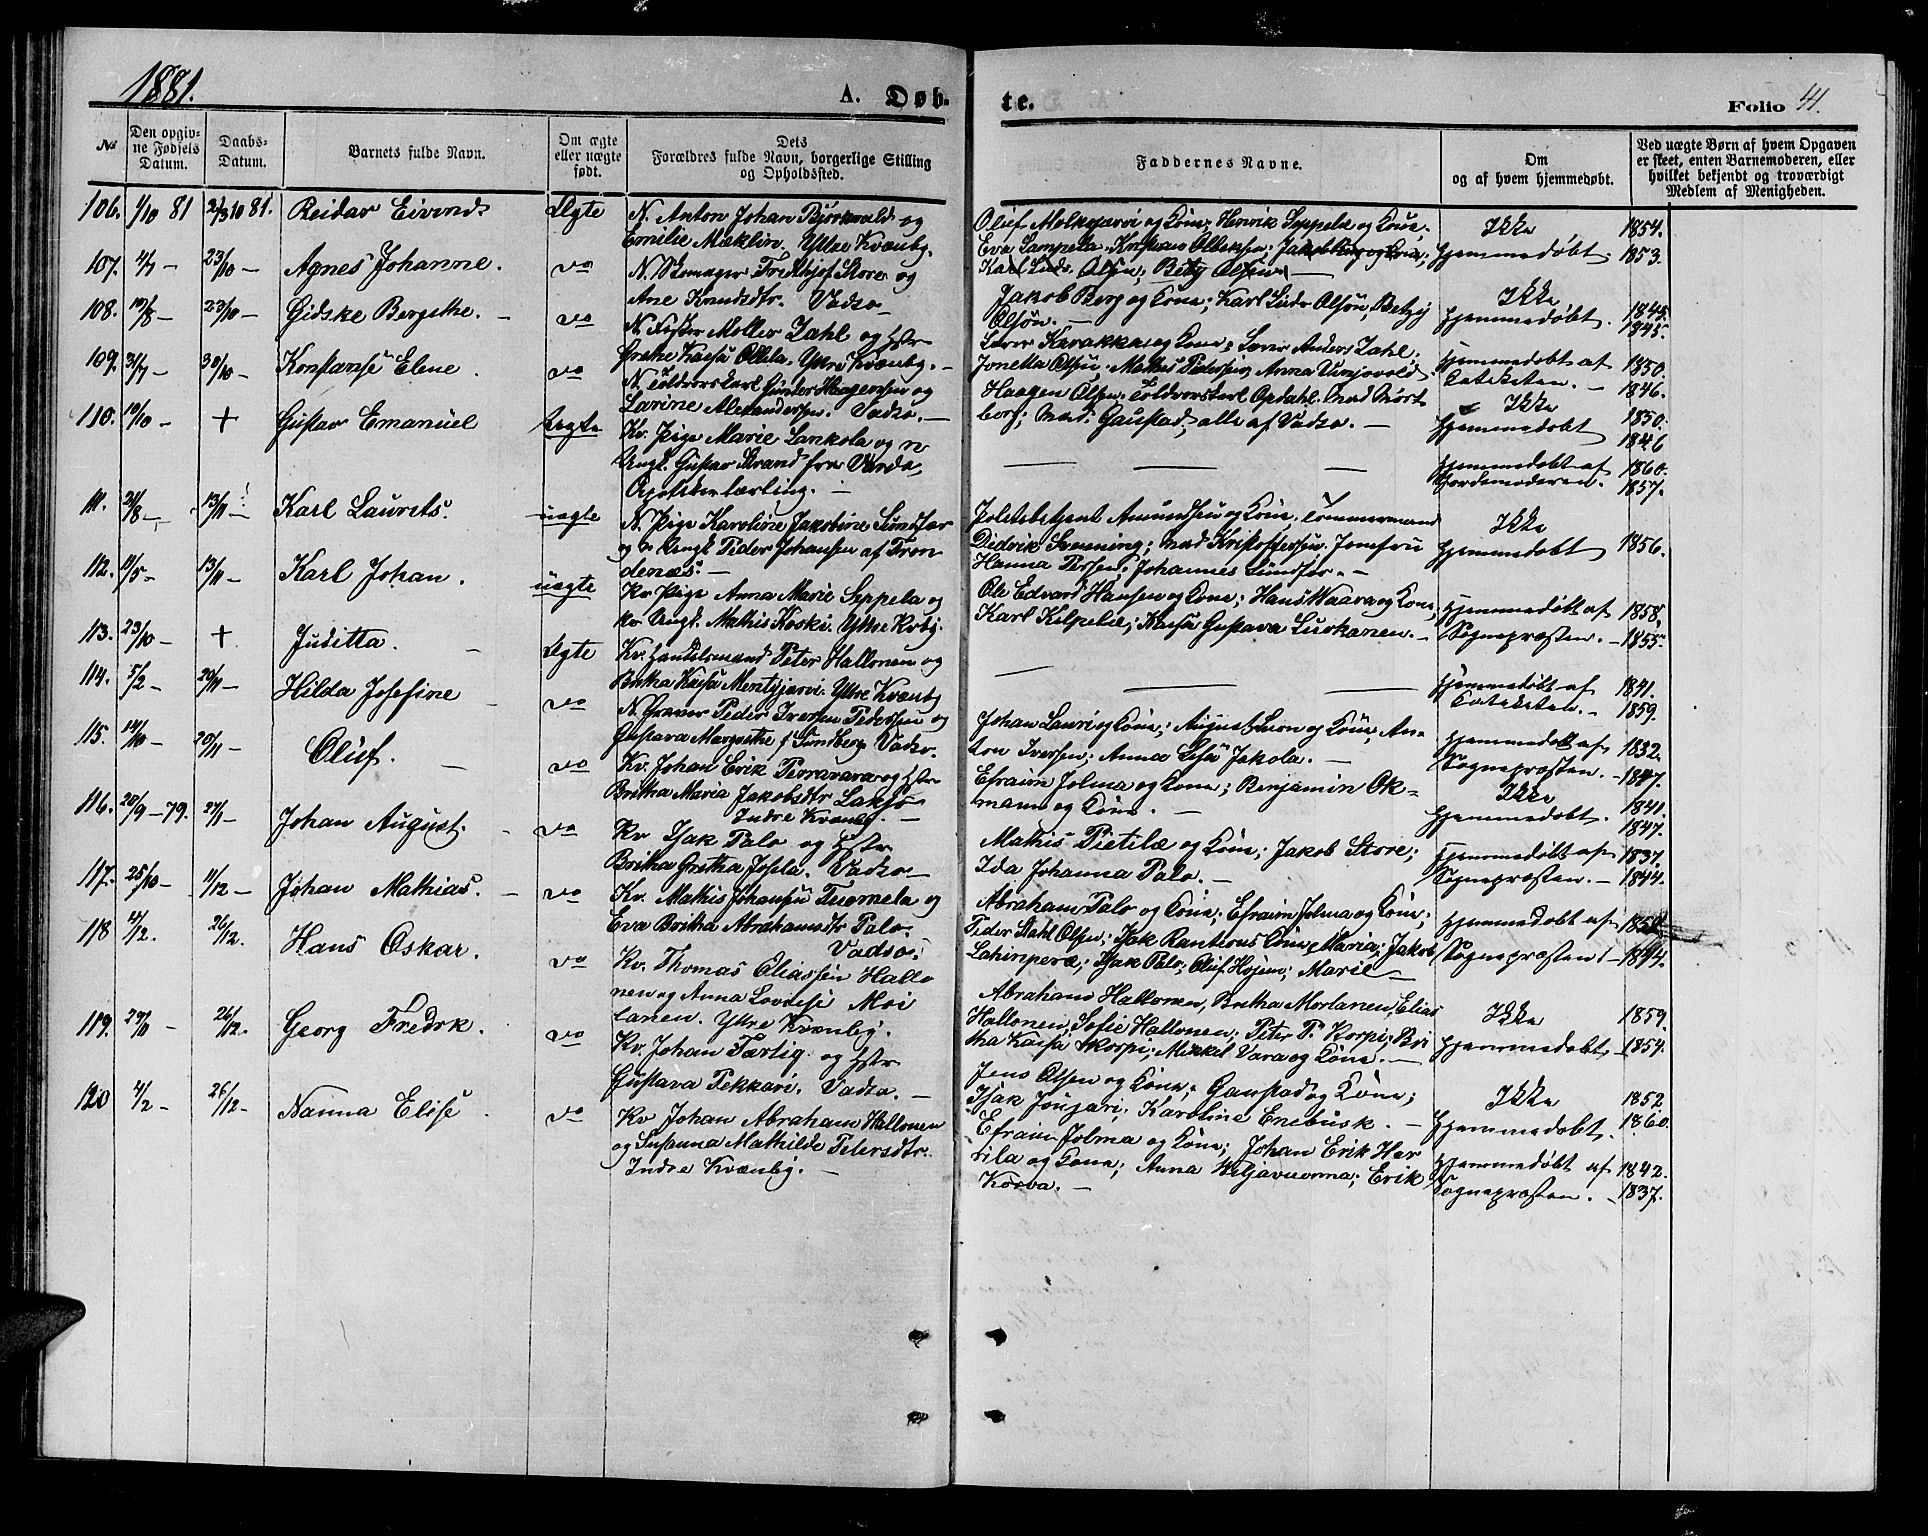 1881.
A. Døb-
te.
Folio 41.
№
Den opgiv-
ne Fødsels
Datum.
Daabs-
Datum.
Barnets fulde Navn.
Om ægte
eller uægte
født.
Dets
Forældres fulde Navn, borgerlige Stilling
og Opholdssted.
Faddernes Navne.
Om
og af hvem hjemmedøbt.
Ved uægte Børn af hvem Opgaven
er skeet, enten Barnemoderen, eller
hvilket bekjendt og troværdigt
Medlem af Menigheden.
106. 1/10 81 Reidar Eivind Ægte
N. Anton Johan Bjørkvold og
Emilie Mæklin. Yttre Kvænby.
Oluf Molkojærvi og Kone; Henrik Seppela og Kone;
Eva Lampela; Jakob Berg og Kone;
Karl Luds. Olsen; Betsy Olsen
Ikke
hjemmedøbt.
1854.
1853.
107. 4/7 — 23/10 — Agnes Johanne. do
N. Skomager Fredthjof Store og
Ane Knudsdtr. Vadsø
Jakob Berg og Kone; Karl Luds Olsen; Betzy
Olsen. —
Ikke
hjemmedøbt.
1845.
1845.
108. 10/8 — 23/10 — Gidske Bergithe. — do
N. Møller Zahl og Hstr
Grethe Kaisa Ollila. Yttre Kvænby. —
Karakka og Kone; Anders Zahl;
Jonetta Olsen; Mathis Pedersen; Anna
hjemmedøbt af
Kateketen. —
1850.
1846.
109. 31/7 — 30/10 — Konstanse Elene. do
N. Toldrorskarl Günder Haagensen og
Larine Alexandersen. Vadsø. —
Haagen Olsen; Toldrorskarl Opdahl; Mad Mort
berg; Mad. Gaustad; alle af Vadsø. —
Ikke
hjemmedøbt
1850.
1846
110. 10/10 — + Gustav Emanuel Uægte
Kv. Pige Marie Lankola og n
Ungk. Gustav Strand fra Vardø,
Apothekerlærling. —
— — — —
hjemmedøbt af
Jordemoderen.
1860.
1857.
111. 31/8 — 13/11 — Karl Laurets. uægte
N. Pige Karoline Jakobine Sundfær
og n Ungk. Peder Johansen af Tron
denæs. —
Politibetjent Amundsen og Kone; Tømmermand
Didrik Svenning; Mad Kristoffersen; Jomfru
Hanna Persen; Johannes Sundfær. —
Ikke
hjemmedøbt
1856.
112. 11/5 — 13/11 — Karl Johan. uægte
Kv Pige Anna Marie Seppela og
kv. Ungk. Mathis Koski. Yttre Kvby.
Ole Edvard Hansen og Kone; Hans Waara og Kone;
Karl Kilpelæ; Kaisa Gustava Luskanen. —
hjemmedøbt af
Sognepræsten. —
1858.
1855.
113. 23/10 — + Juditta. — Ægte
Kv. Handelsmand Peter Hallonen og
Britha Kaisa Mentyjarvi. Yttre Kvænby
— — —
hjemmedøbt af
Kateketen. —
1841.
1859.
114. 5/2 — 20/11 — Hilda Josefine — do
N. Graver Peder Iversen Pedersen og
Gustava Margrethe f Sundberg. Vadsø.
Johan Lauri og Kone; August og Kone; An-
ton Iversen; Anna Lisa Jakola. —
hjemmedøbt af
Sognepræsten. —
1832.
1847.
115. 14/10 — 20/11 — Oluf. — do
Kv. Johan Erik Perravara og Hstr
Britha Maria Jakobsdtr
Indre Kvænby. —
Efraim Jolma og Kone; Benjamin Ok-
mann og Kone. —
Ikke
hjemmedøbt.
1841.
1847.
116. 20/9 —79. 27/11 — Johan August. — do
Kv Isak Palo og Hstr
Britha Gretha Josela. Vadsø —
Mathis Pietilæ og Kone; Jakob Store;
Ida Johanna Palo. —
hjemmedøbt af
Sognepræsten. —
1837.
1844.
117. 25/10 — 11/12 — Johan Mathias. — do
Kv. Mathis Johansen Tuomela og
Eva Britha Abrahamsdtr Palo.
Vadsø.
Abraham Palo og Kone; Efraim Jolma og Kone;
Peder Dahl Olsen; Isak Kone Maria; Jakob
Lahinperæ; Isak Palo; Oluf Hojem; Marie —
hjemmedøbt af
Sognepræsten —
1844.
118 4/12. 26/12. Hans Oskar. do
Kv. Thomas Eliassen Hallo
nen og Anna Lovise Moi
lanen. Yttre Kvænby.
Abraham Hallonen, Britha Moilanen, Elias
Hallonen, Sofie Hallonen; Peter P. Korpi; Bri
tha Kaisa Korpi; Mikkel Vara og Kone. —
Ikke
hjemmedøbt.
1859.
1854.
119. 29/11 — 26/12. Georg Fredrk. do
Kv. Johan Tærtig. og Hstr
Gustava Pekkari. Vadsø. —
Jens Olsen og Kone; Gaustad og Kone;
Isak Joujæri; Karoline Enebusk. —
Ikke
hjemmedøbt.
1852
1860.
120 4/2 — 26/12 — Nanna Elise. do
Kv Johan Abraham Hallonen
og Susanna Mathilde Petersdtr.
Indre Kvænby. —
Efraim Jolma og Kone; Johan Erik Her
vila og Kone; Anna Veljavuoma; Erik
Korva. —
hjemmedøbt af
Sognepræsten. —
1842.
1837.